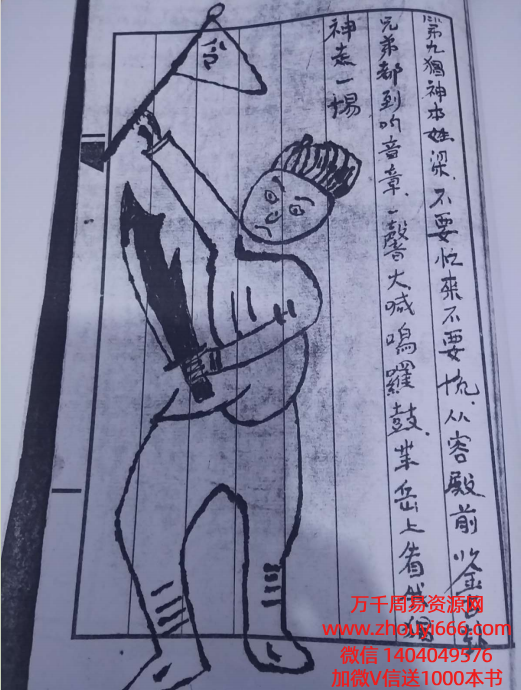 第九猖神本姓梁、不要忙来不要慌、从容殿前
兄弟都到音章、一聲大喊鳴羅鼓、岳上看
神走一場
令
万千周易资源网
www.zhouyi666.com
微信 1404049576
加微V信送1000本书